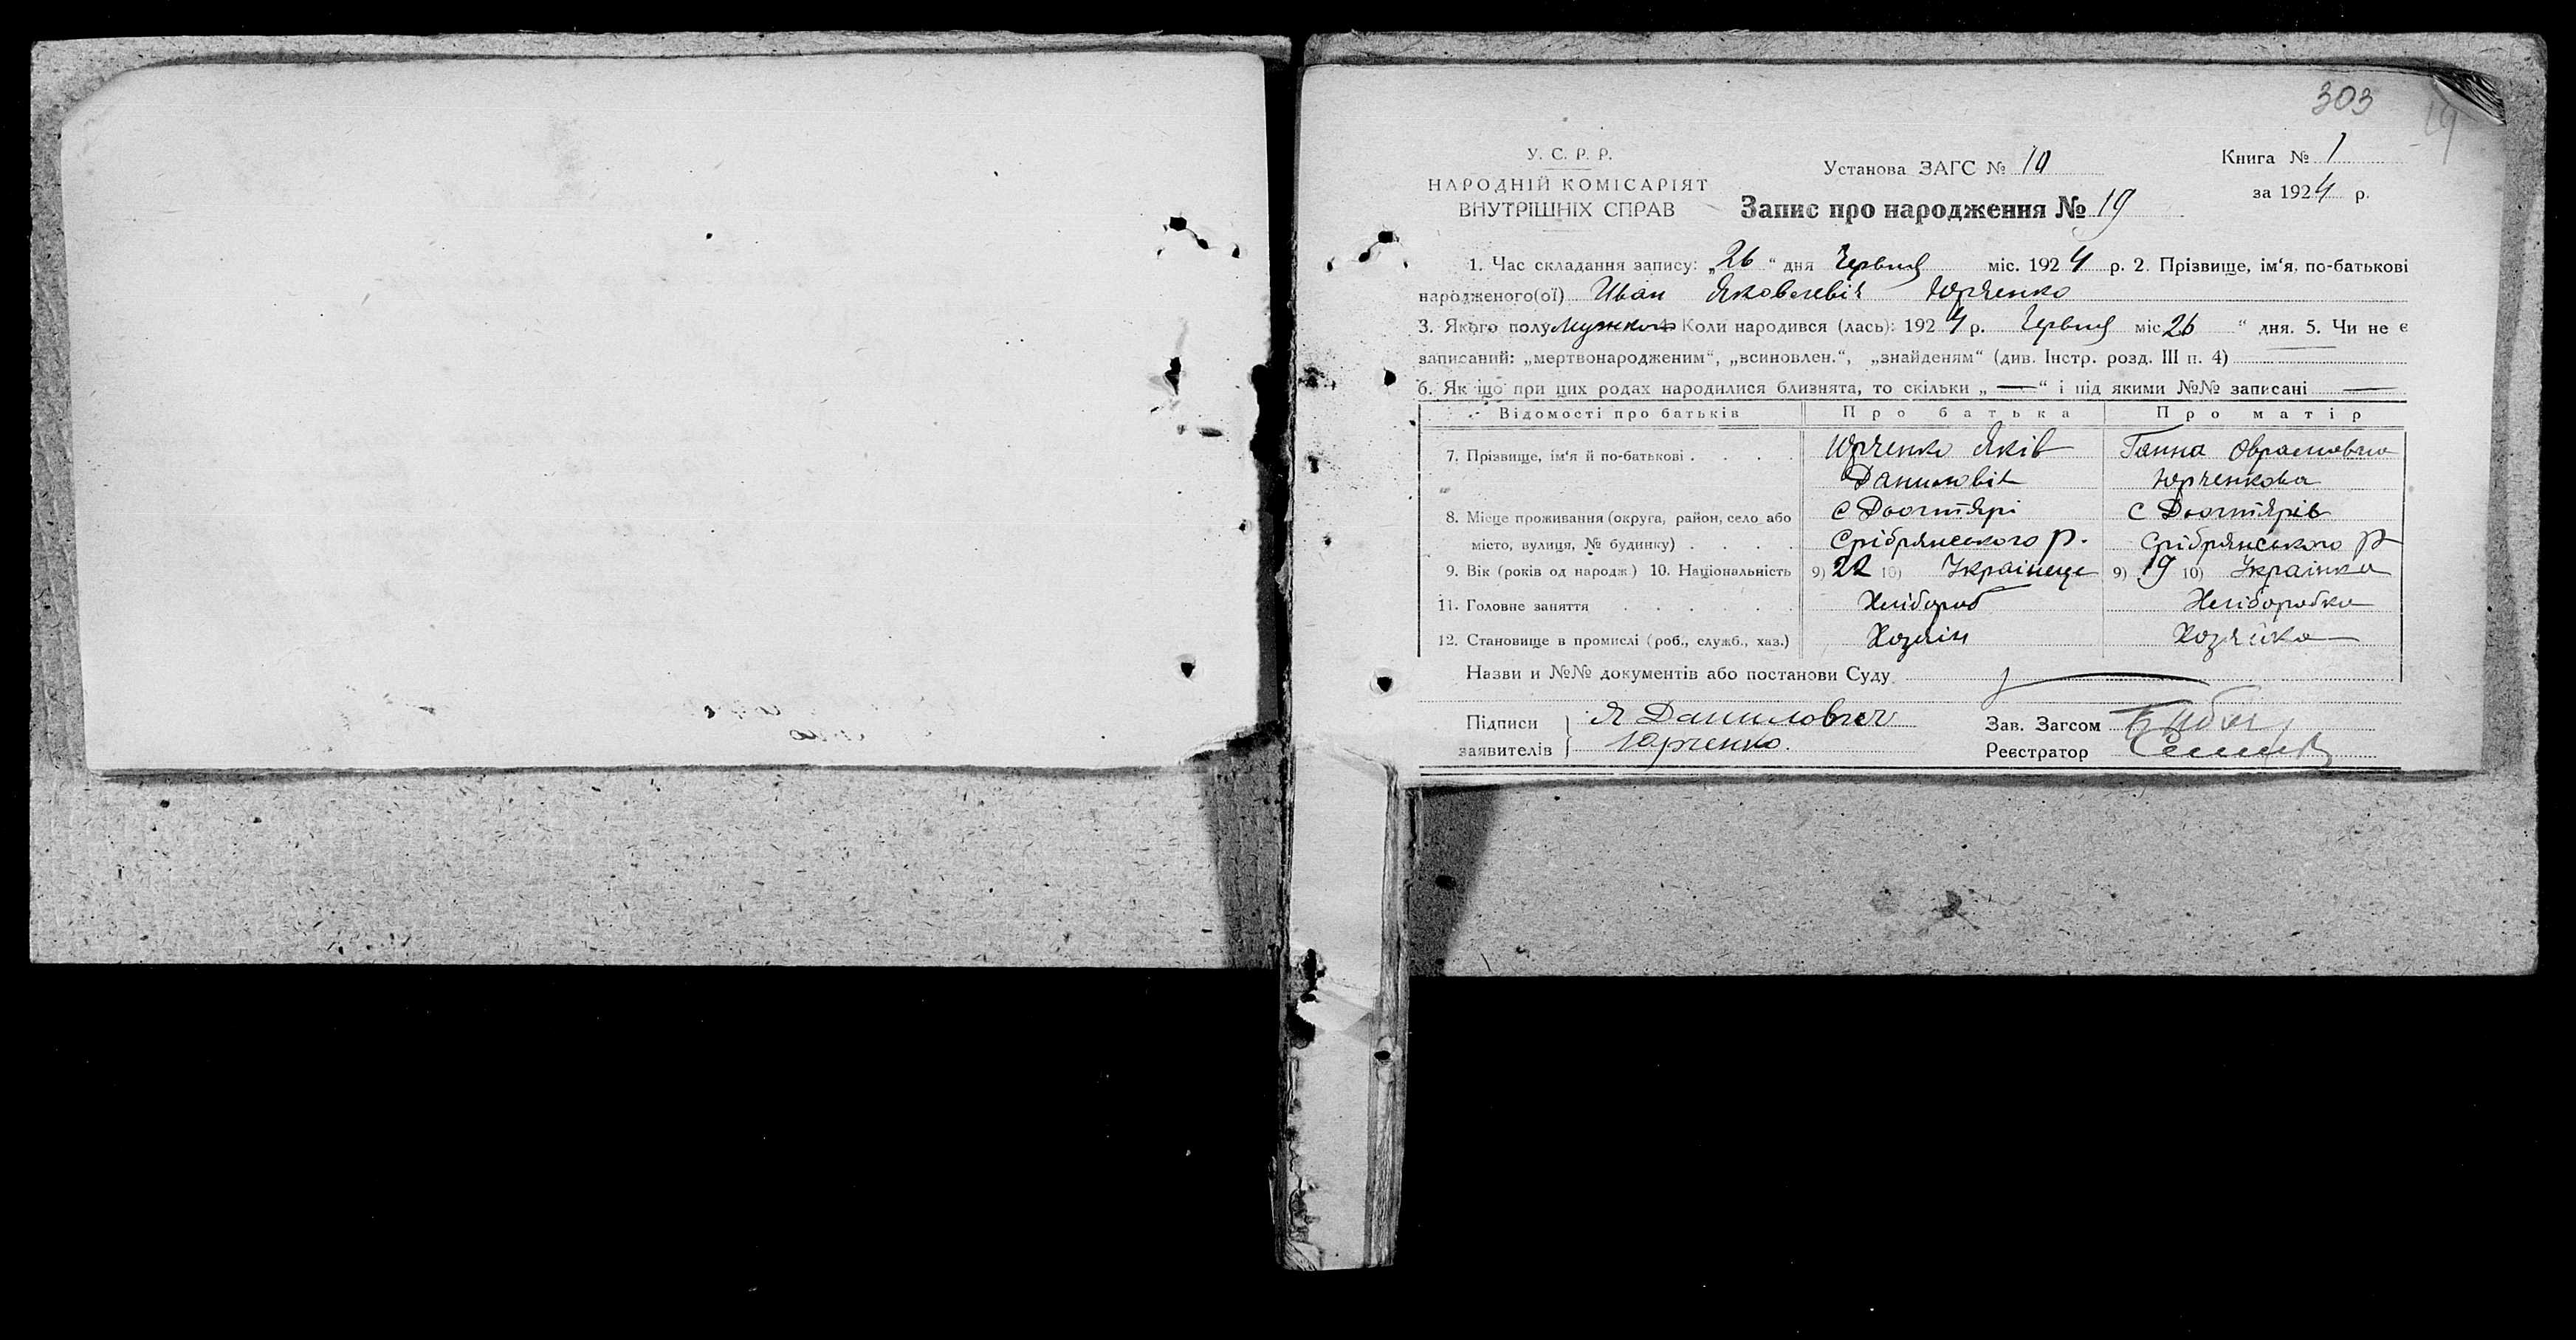 303
19
У. С. Р. Р.
НАРОДНІЙ КОМІСАРІЯТ
ВНУТРІШНІХ СПРАВ
Установа ЗАГС № 10
Запис про народження № 19
Книга № 1
за 1924 р.
1. Час складання запису: „26“ дня Червня міс. 1924 р. 2. Прізвище, ім‘я, по-батькові
народженого(ої) Иван Яковлевіч Юрченко
3. Якого полу Мужкого 4. Коли народився (лась): 1924 р. Червня міс 26 “ дня. 5. Чи не є
записаний: „мертвонародженим“, „всиновлен.“, „знайденям“ (див. Інстр. розд. III п. 4)
6. Як що при цих родах народилися близнята, то скільки „ — “ і під якими №№ записані —
Відомості про батьків Про батька Про матір
7. Прізвище, ім‘я й по-батькові . . . . Юрченко Яків Ганна
Даниловіч Юрченкова
8. Місце проживання (округа, район, село або с с
місто, вулиця, № будинку) . . . . Срібрянського р. Срібрянського р
9. Вік (років од народж.) 10. Національність 9) 22 10) Українець 9) 19 10) Українка
11. Головне заняття . . . . . . Хлібороб Хліборобка
12. Становище в промислі (роб., служб., хаз.) Хозяін Хозяйка
Назви и №№ документів або постанови Суду
Підписи Я Данилович Зав. Загсом
заявителів Юрченко. Реєстратор